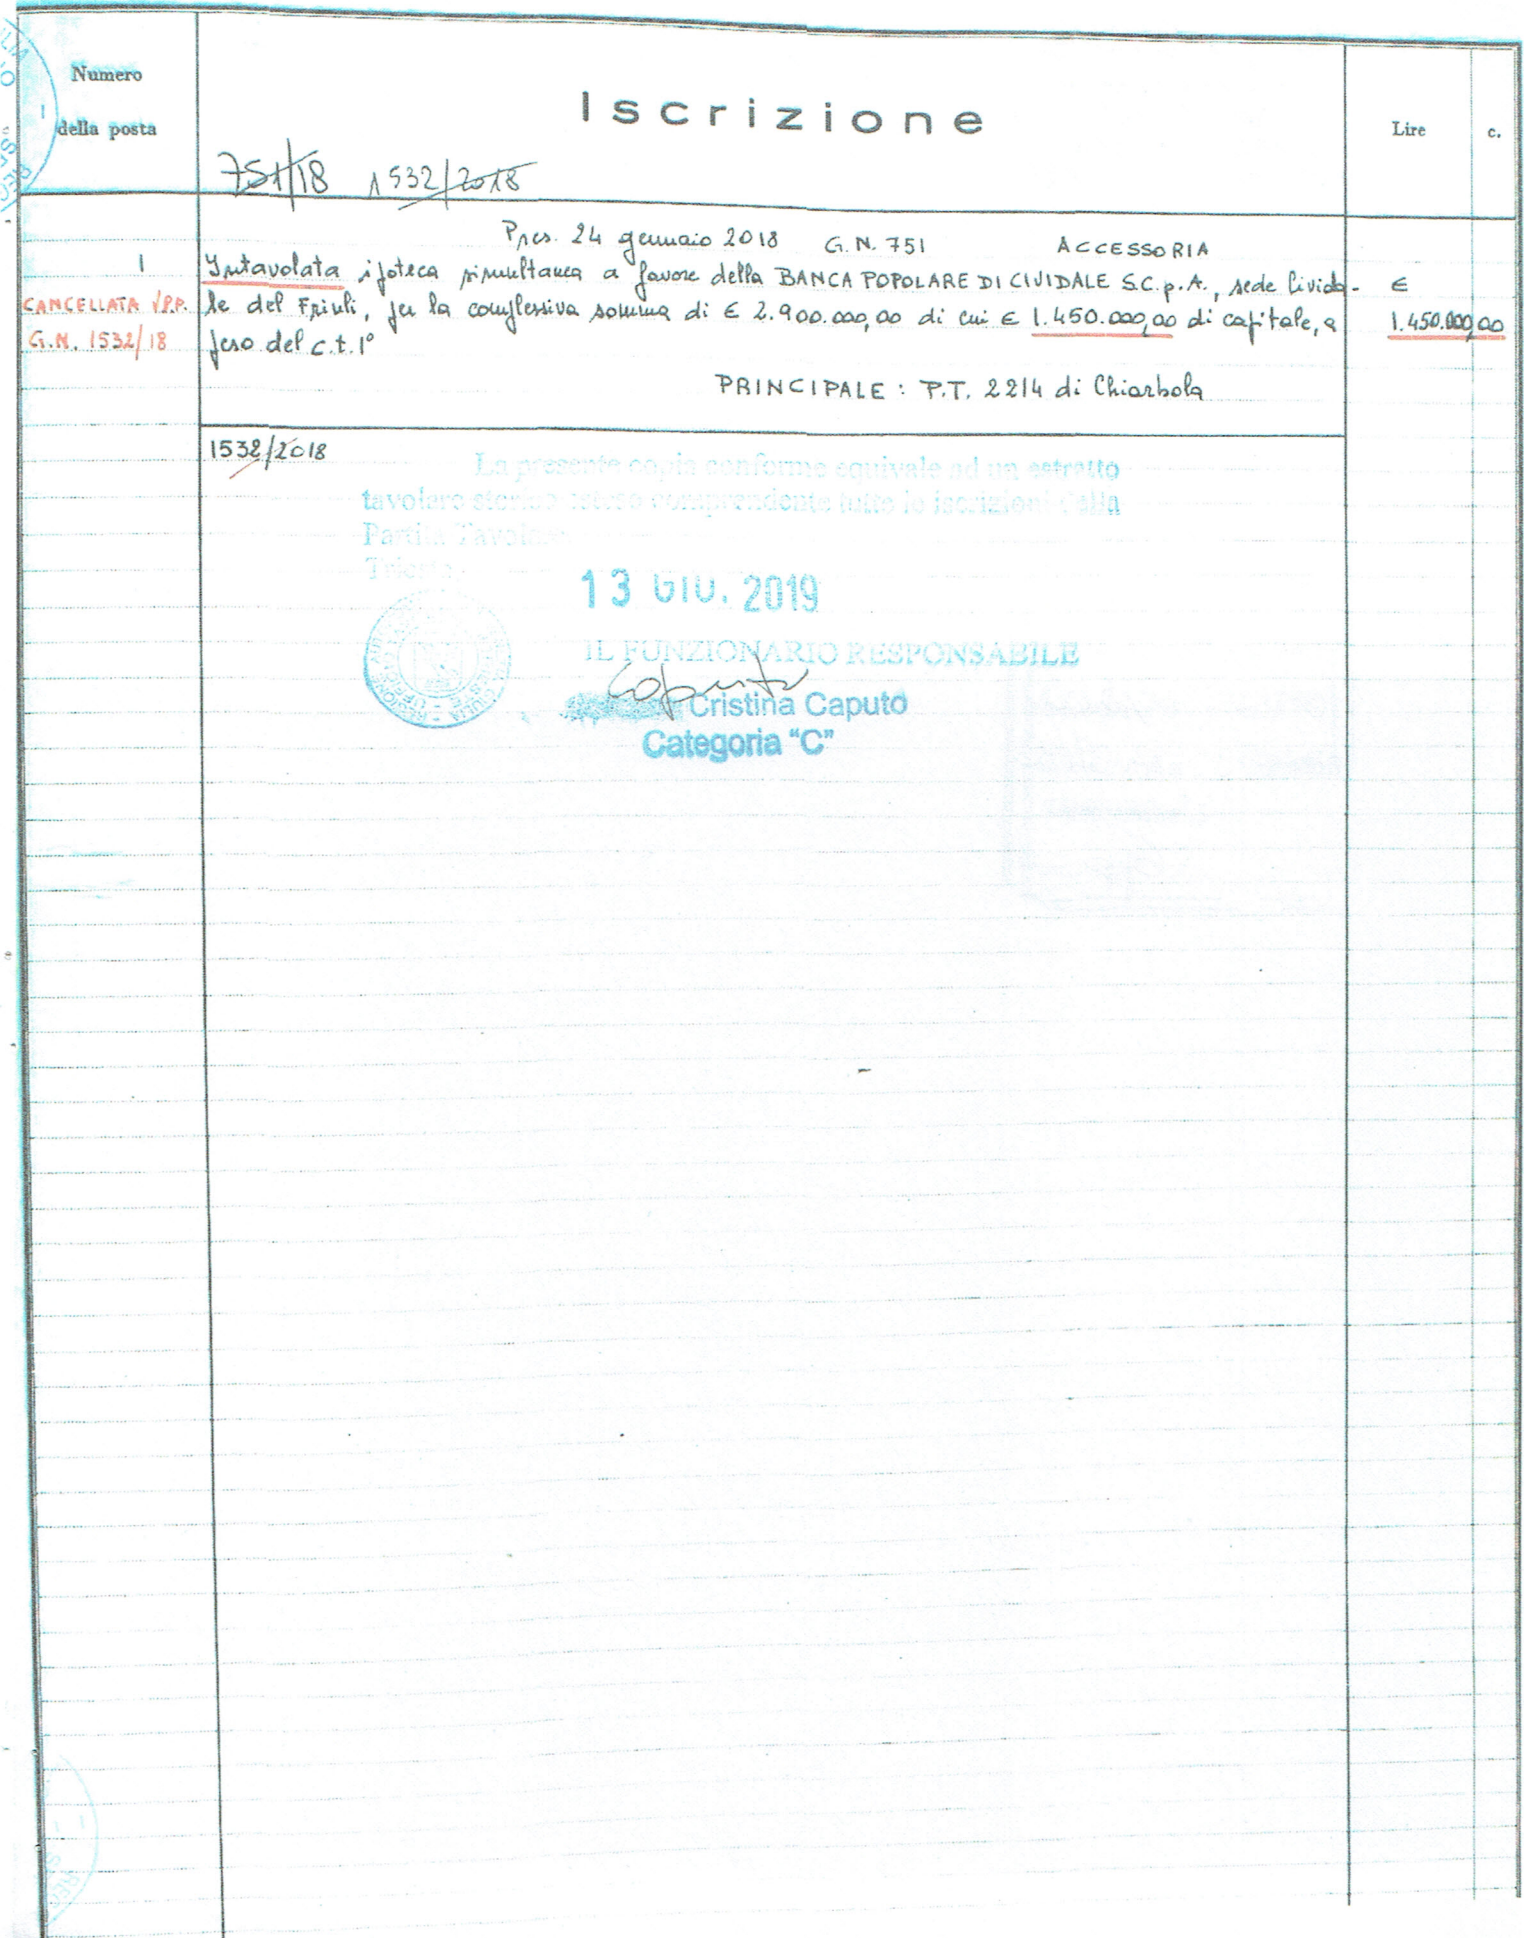 Numero
della posta
Iscrizione
Lire
c.
751/18 1532/2018
Pres. 24 gennaio 2018 G.N. 751 ACCESSORIA
1 Intavolata ipoteca simultanea a favore della BANCA POPOLARE DI CIVIDALE S.C.p.A., sede Civida- €
CANCELLATA V.P.P. le del Friuli, per la complessiva somma di € 2.900.000,00 di cui € 1.450.000,00 di capitale, a 1.450.000,00
G.N. 1532/18 peso del c.t. 1°
PRINCIPALE : P.T. 2214 di Chiarbola
1532/2018
La presente copia conforme equivale ad un estratto
tavolare storico esteso comprendente tutte le iscrizioni della
Partita Tavolare
Trieste,
13 GIU. 2019
IL FUNZIONARIO RESPONSABILE
Caputo
Cristina Caputo
Categoria "C"